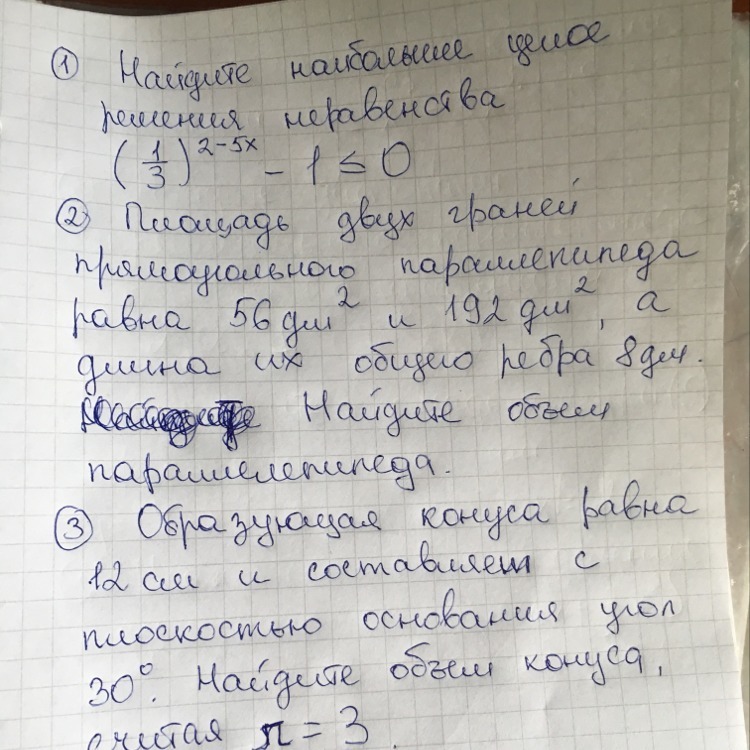 ① Найдите наибольшее целое
решения неравенства
(1/3)^(2-5x) - 1 ≤ 0
② Площадь двух граней
прямоугольного параллепипеда
равна 56 дм² и 192 дм², а
длина их общего ребра 8 дм.
Найдите объем
параллелепипеда.
③ Образующая конуса равна
12 см и составляет с
плоскостью основания угол
30°. Найдите объем конуса,
считая π = 3